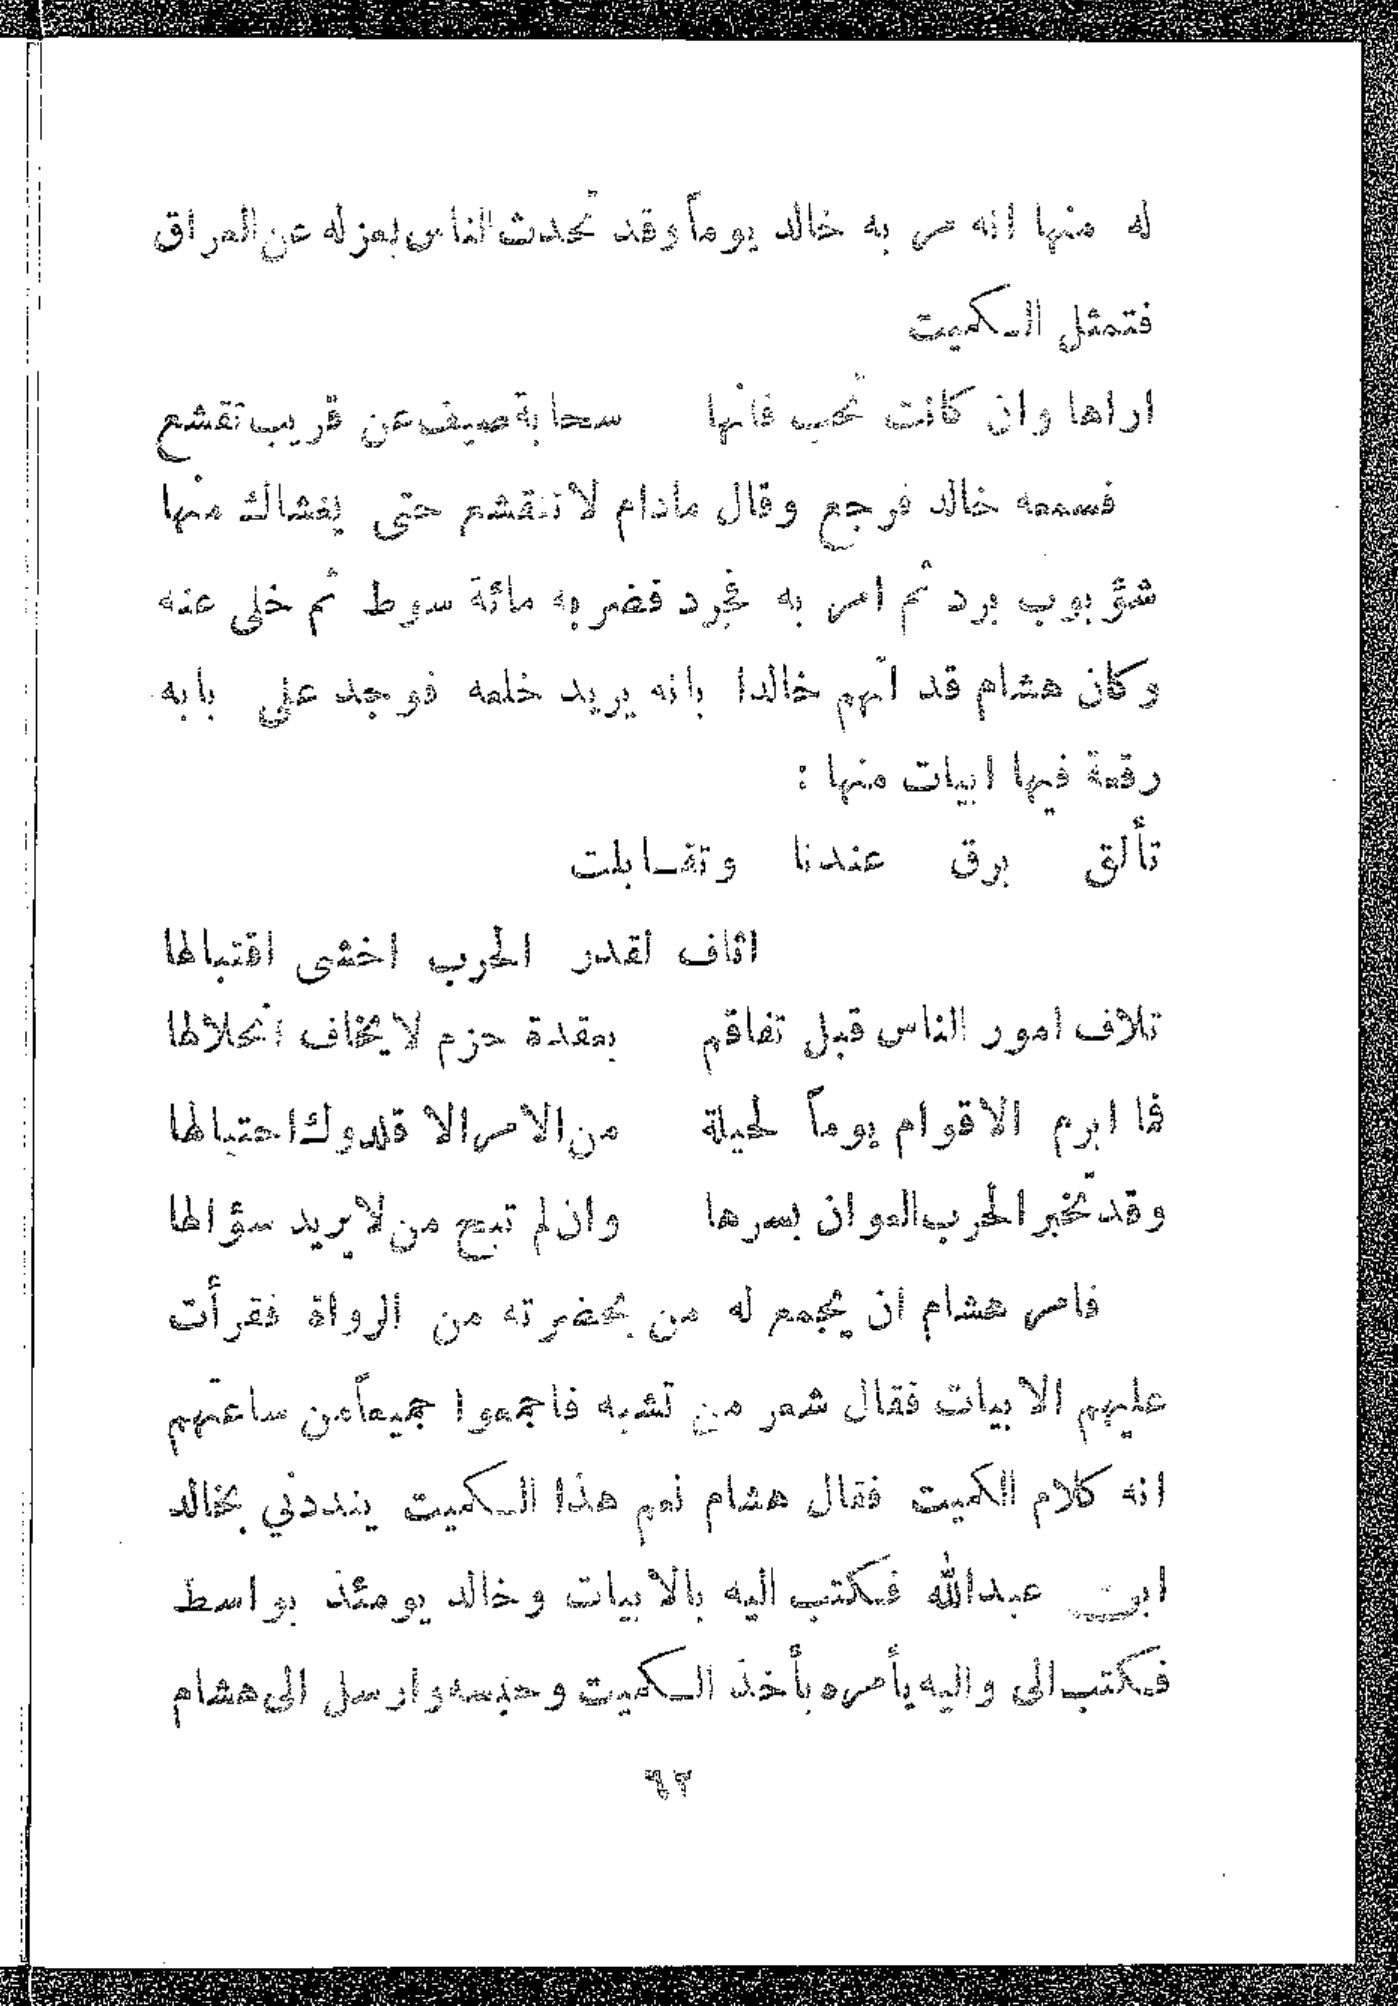 له منها انه مر به خالد يوماً وقد تحدث الناس بعزله عن العراق
فتمثل الكميت
اراها وان كانت تحب فانها سحابة صيف عن قريب تقشع
فسمعه خالد فرجع وقال مادام لا تنقشع حتى يغشاك منها
شؤبوب برد ثم امر به فجرد فضربه مائة سوط ثم خلى عنه
وكان هشام قد اتهم خالدا بانه يريد خلعه فوجد على بابه
رقعة فيها ابيات منها :
تألق برق عندنا وتقــابلت
اثاف لقدر الحرب اخشى اقتبالها
تلاف امور الناس قبل تفاقم بعقدة حزم لا يخاف انحلالها
فما ابرم الاقوام يوماً لحيلة من الامر الا قلدوك احتيالها
وقد تخبر الحرب العوان بسرها وان لم تبح من لا يريد سؤالها
فامر هشام ان يجمع له من بحضرته من الرواة فقرأت
عليهم الابيات فقال شعر من تشبه فاجمعوا جميعاً من ساعتهم
انه كلام الكميت فقال هشام نعم هذا الكميت ينددني بخالد
ابن عبدالله فكتب اليه بالابيات وخالد يومئذ بواسط
فكتب الى واليه يأمره بأخذ الكميت وحبسه وارسل الى هشام
٦٢